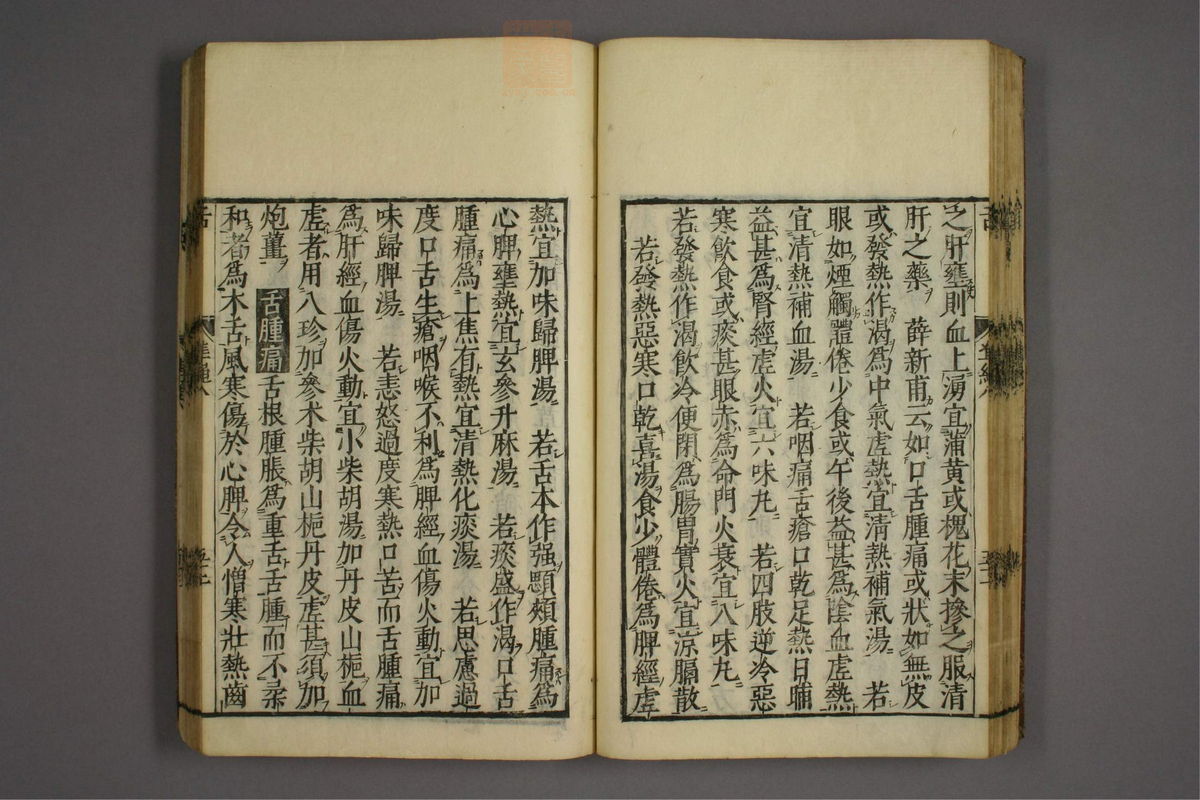 之肝壅則血上湧宜蒲黃或槐花末摻之服清
肝之藥　薛新甫云如口舌腫痛或狀如無皮
或發熱作渴爲中氣虛熱宜清熱補氣湯　若
眼如煙觸體倦少食或午後益甚爲陰血虛熱
宜清熱補血湯　若咽痛舌瘡口乾足熱日晡
益甚爲腎經虛火宜六味丸　若四肢逆冷惡
寒飲食或痰甚眼赤爲命門火衰宜八味丸
若發熱作渴飲冷便閉爲腸胃實火宜涼膈散
若發熱惡寒口乾喜湯食少體倦爲脾經虛
熱宜加味歸脾湯　若舌本作强顋頰腫痛爲
心脾壅熱宜玄參升麻湯　若痰盛作渴口舌
腫痛爲上焦有熱宜清熱化痰湯　若思慮過
度口舌生瘡咽喉不利爲脾經血傷火動宜加
味歸脾湯　若恚怒過度寒熱口苦而舌腫痛
爲肝經血傷火動宜小柴胡湯加丹皮山梔血
虛者用八珍加參朮柴胡山梔丹皮虛甚須加
炮薑　舌腫痛　舌根腫脹爲重舌舌腫而不柔
和者爲木舌風寒傷於心脾令人憎寒壯熱齒